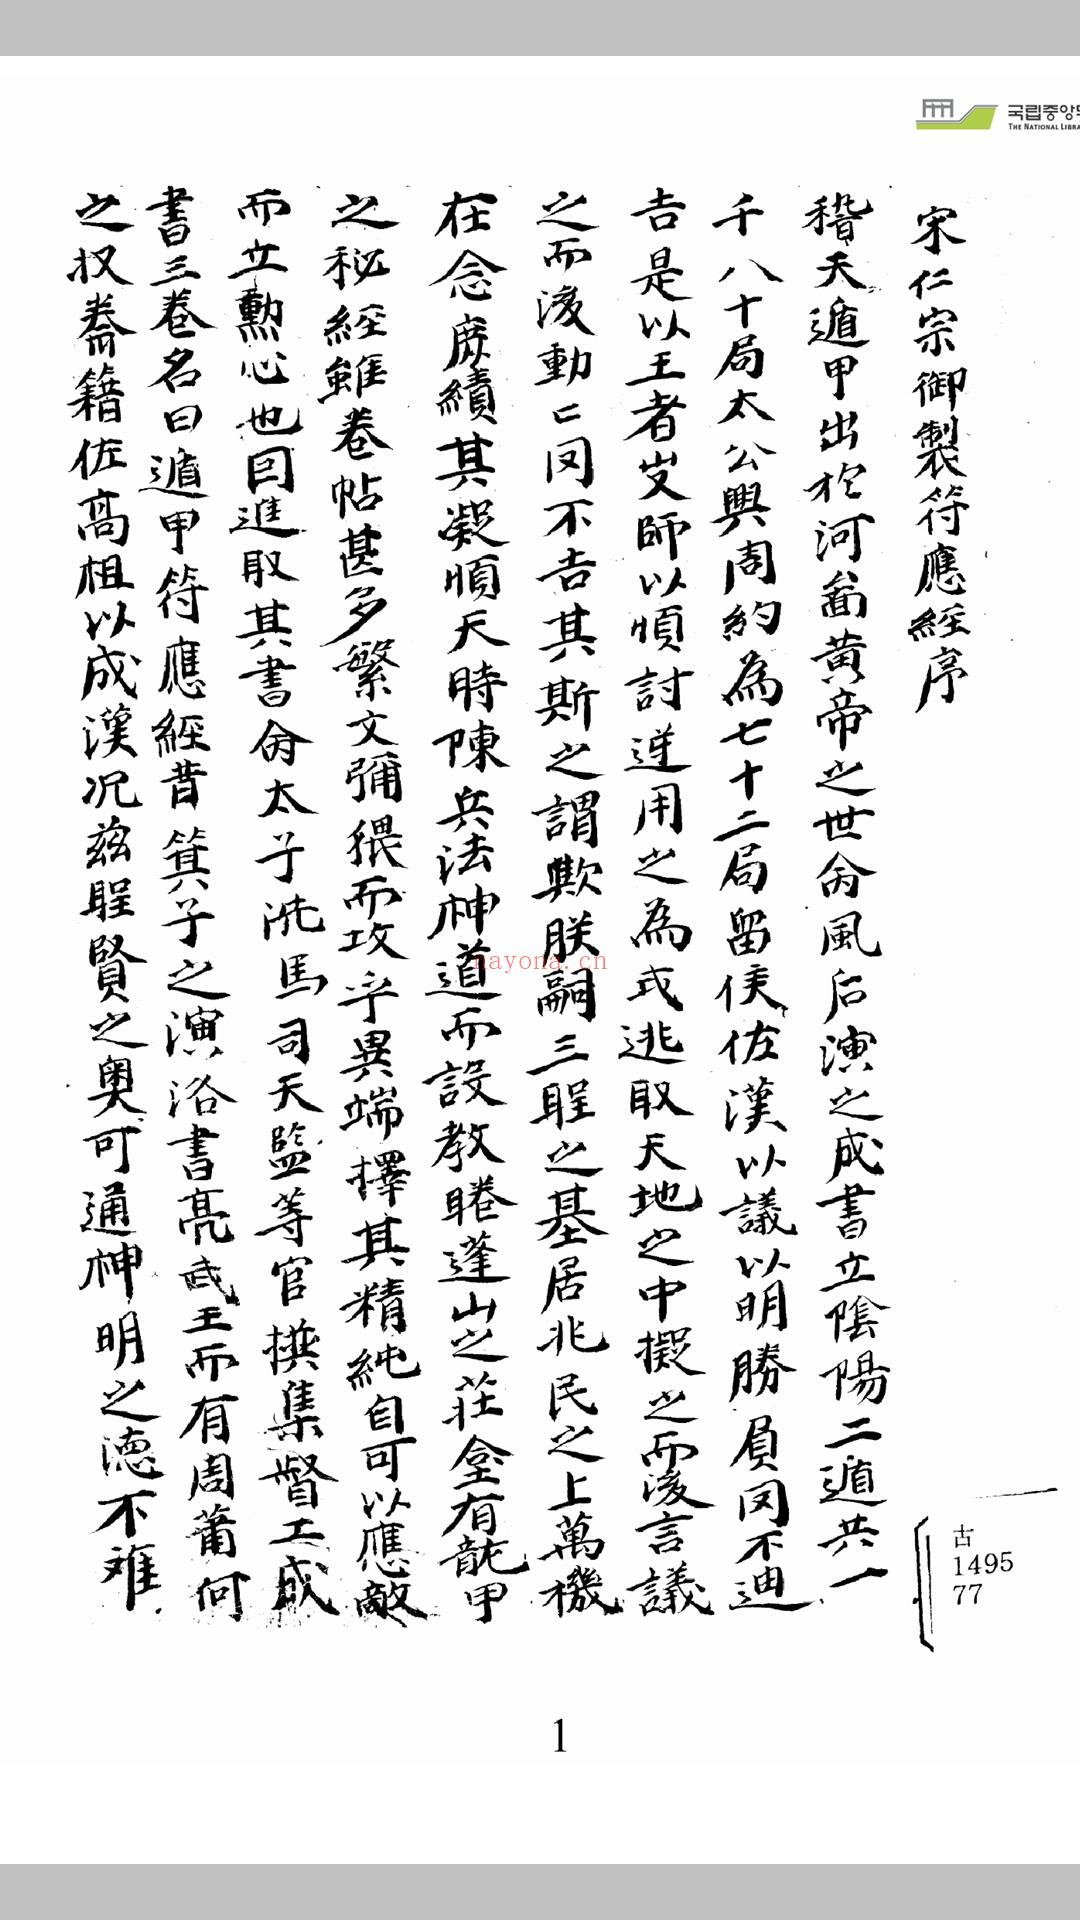 국립중앙도
THE NATIONAL LIBRA
宋仁宗御製符應經序
稽天遁甲出於河啚黃帝之世命風后演之成書立陰陽二遁共一
千八十局太公興周約為七十二局留侯佐漢以議以明勝負罔不迪
吉是以王者岁師以順討逆用之為式逃取天地之中擬之而後言議
之而後動亡罔不吉其斯之謂歟朕嗣三聖之基居兆民之上萬機
在念庶績其凝順天時陳兵法神道而設教睠蓬山之荘堂有龍甲
之秘經雖卷帖甚多繁文彌猥而攻乎異端擇其精純自可以應敵
而立勳心也囙進取其書命太子洗馬司天監等官撰集督工成
書三卷名曰遁甲符應經昔箕子之演洛書亮武王而有周蕭何
之収秦籍佐高祖以成漢况茲聖賢之奥可通神明之德不难
古
1495
77
nayona.cn
1